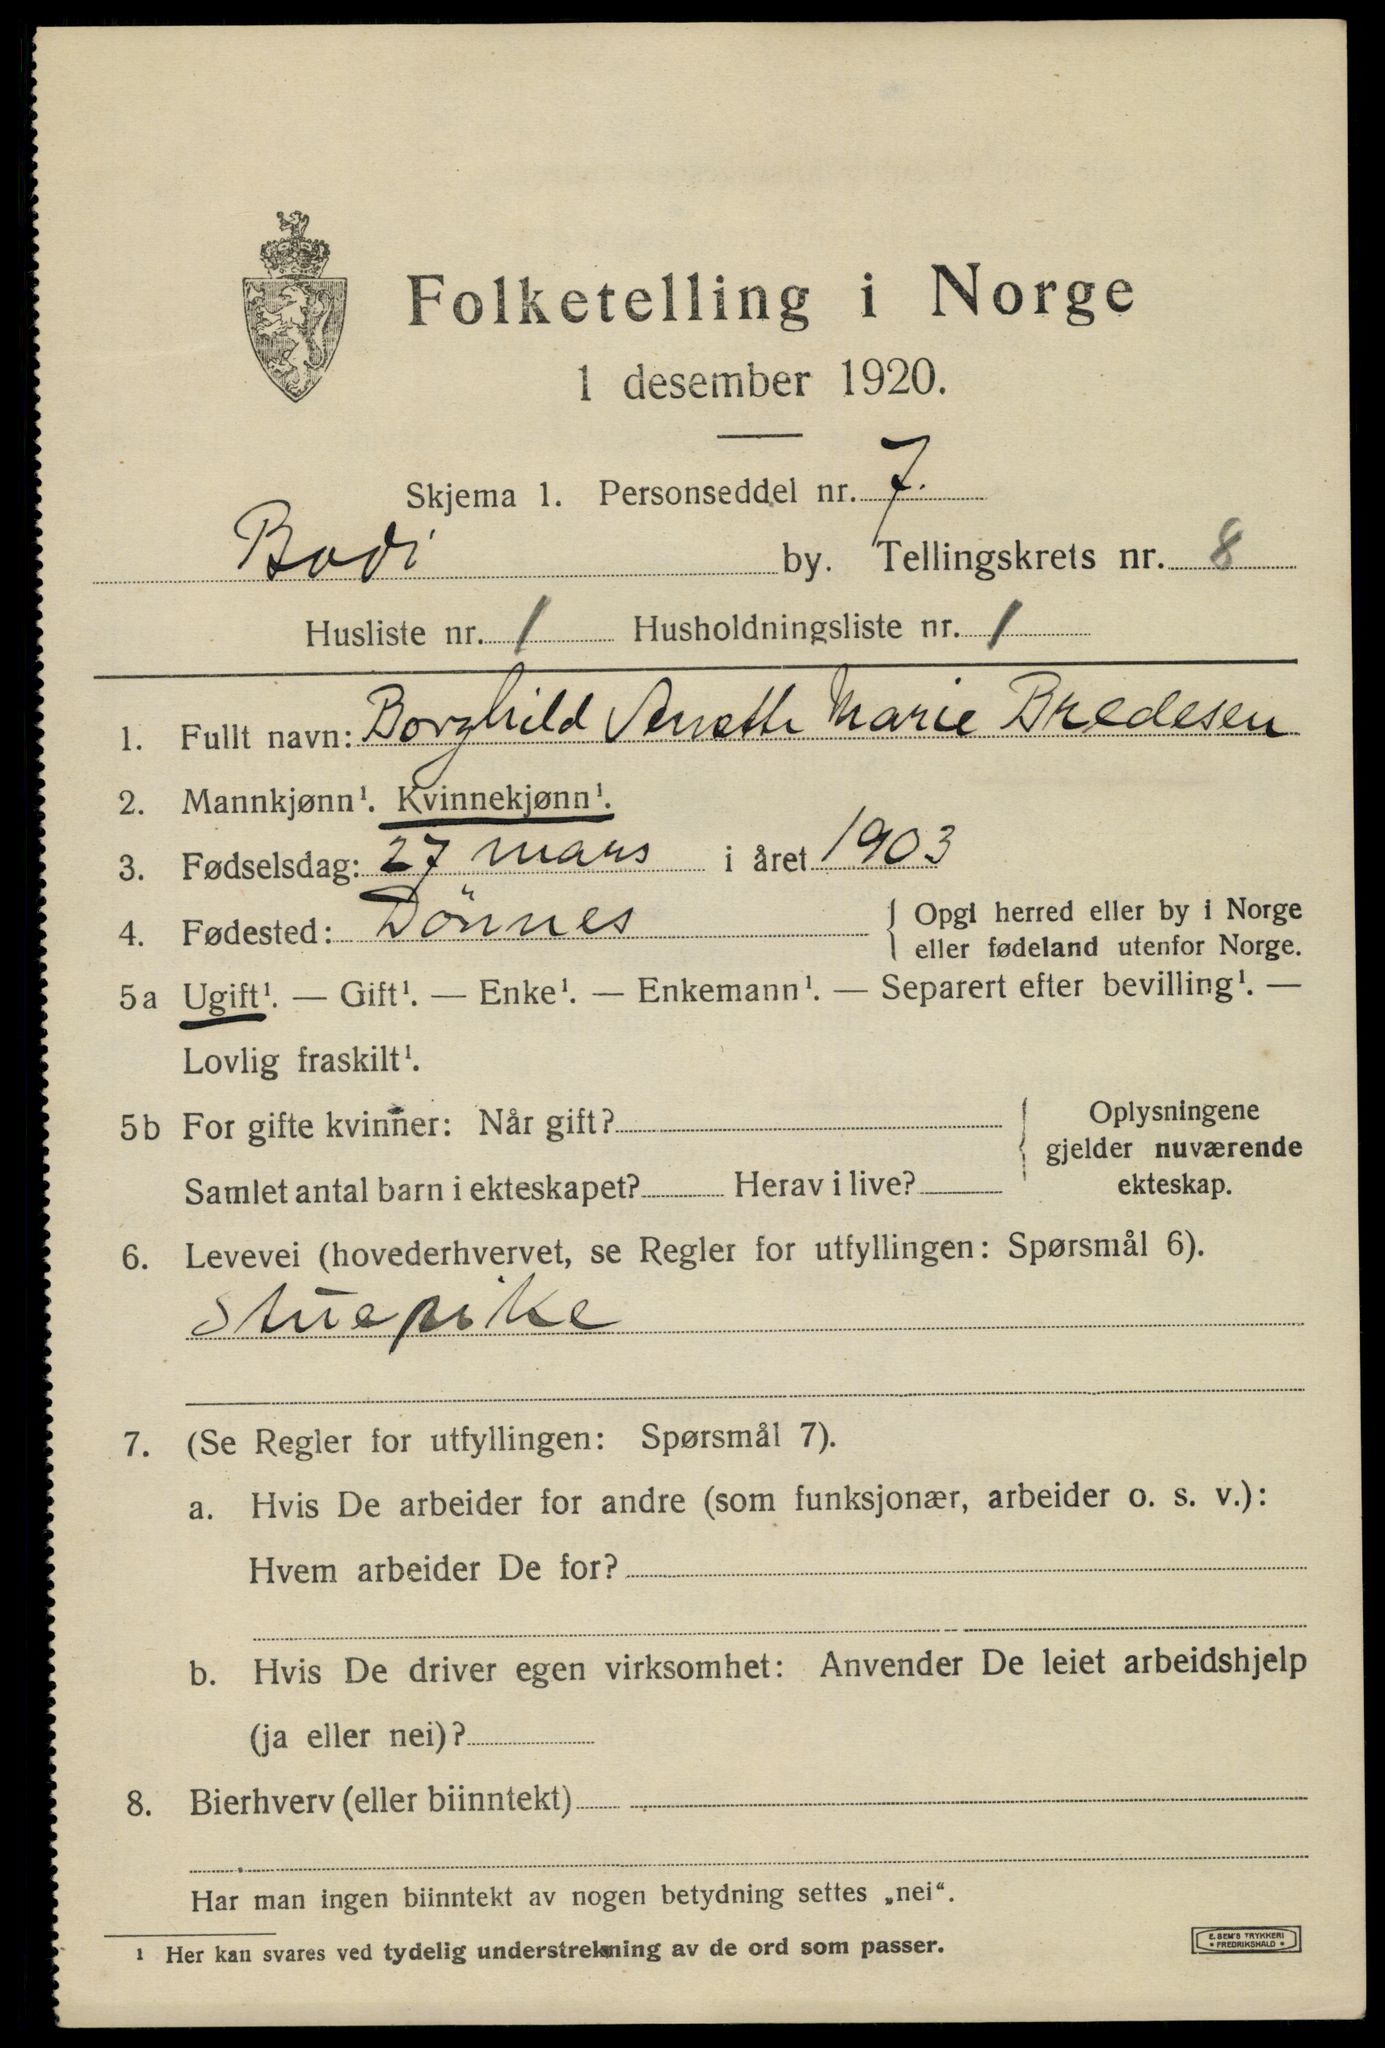 Folketelling i Norge
1 desember 1920.
Skjema 1. Personseddel nr. 7.
Bodö by. Tellingskrets nr. 8
Husliste nr. 1 Husholdningsliste nr. 1
1. Fullt navn: Borghild Marie Bredesen
2. Mannkjønn¹. Kvinnekjønn¹.
3. Fødselsdag: 27 mars i året 1903
4. Fødested: Dönnes { Opgi herred eller by i Norge
eller fødeland utenfor Norge.
5a Ugift¹. — Gift¹. — Enke¹. — Enkemann¹. — Separert efter bevilling¹. —
Lovlig fraskilt¹.
5b For gifte kvinner: Når gift? { Oplysningene
gjelder nuværende
Samlet antal barn i ekteskapet? Herav i live? ekteskap.
6. Levevei (hovederhvervet, se Regler for utfyllingen: Spørsmål 6).
Stuepike
7. (Se Regler for utfyllingen: Spørsmål 7).
a. Hvis De arbeider for andre (som funksjonær, arbeider o. s. v.):
Hvem arbeider De for?
b. Hvis De driver egen virksomhet: Anvender De leiet arbeidshjelp
(ja eller nei)?
8. Bierhverv (eller biinntekt)
Har man ingen biinntekt av nogen betydning settes „nei“.
¹ Her kan svares ved tydelig understrekning av de ord som passer.
E. SEM'S TRYKKERI
• FREDRIKSHALD •